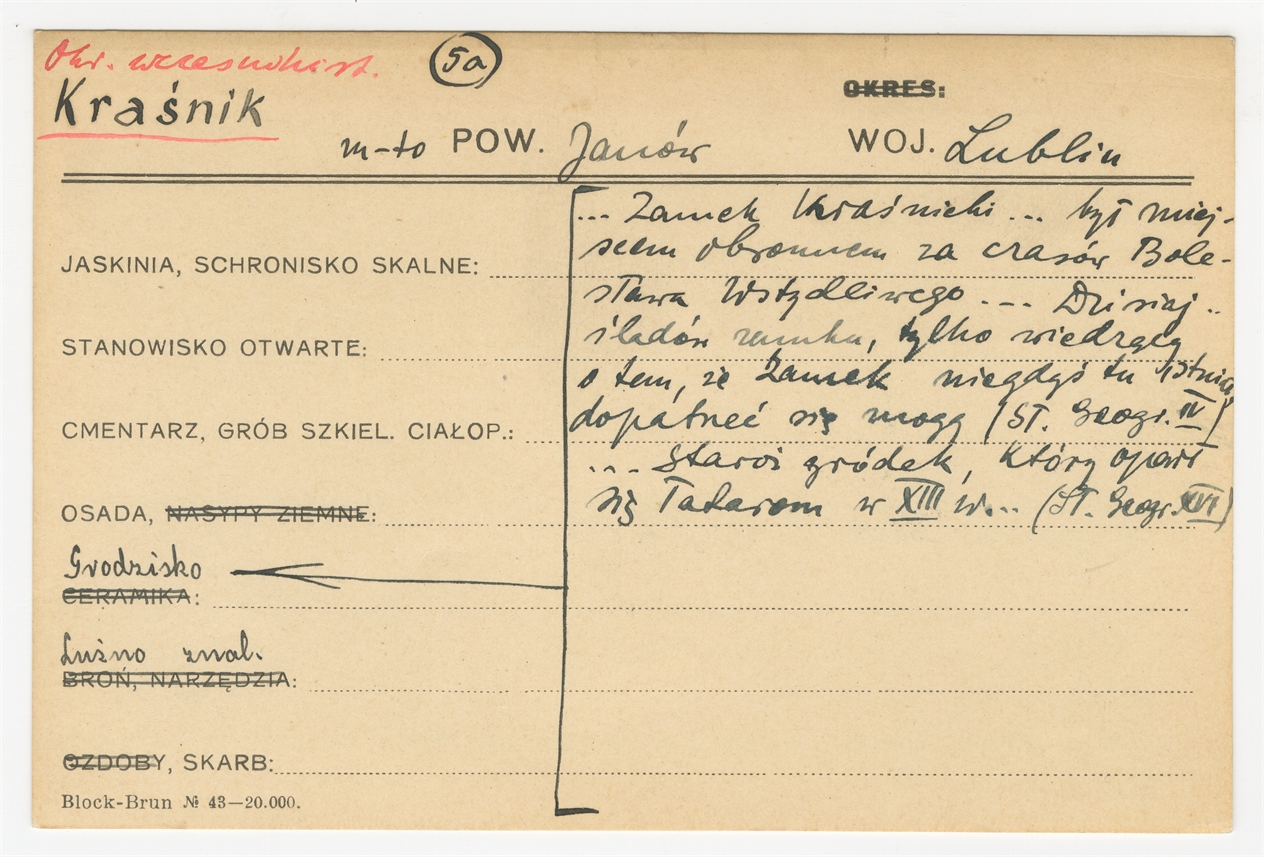 Okr. wczesnohist.
5a
Kraśnik
OKRES:
m-to POW. Janów WOJ. Lublin
... Zamek Kraśnicki ... był miej-
scem obronnem za czasów Bole-
JASKINIA, SCHRONISKO SKALNE:
sława Wstydliwego ... Dzisiaj ..
śladów zamku, tylko wiedzący
STANOWISKO OTWARTE:
o tem, że Zamek niegdyś tu istniał
dopatrzeć się mogą (Sł. Geogr. IV)
CMENTARZ, GRÓB SZKIEL. CIAŁOP.:
... Staroż. gródek, który oparł
się Tatarom w XIII w... (Sł. Geogr. XVI)
OSADA, NASYPY ZIEMNE:
Grodzisko
CERAMIKA:
Luźno znal.
BROŃ, NARZĘDZIA:
OZDOBY, SKARB:
Block-Brun № 43—20.000.